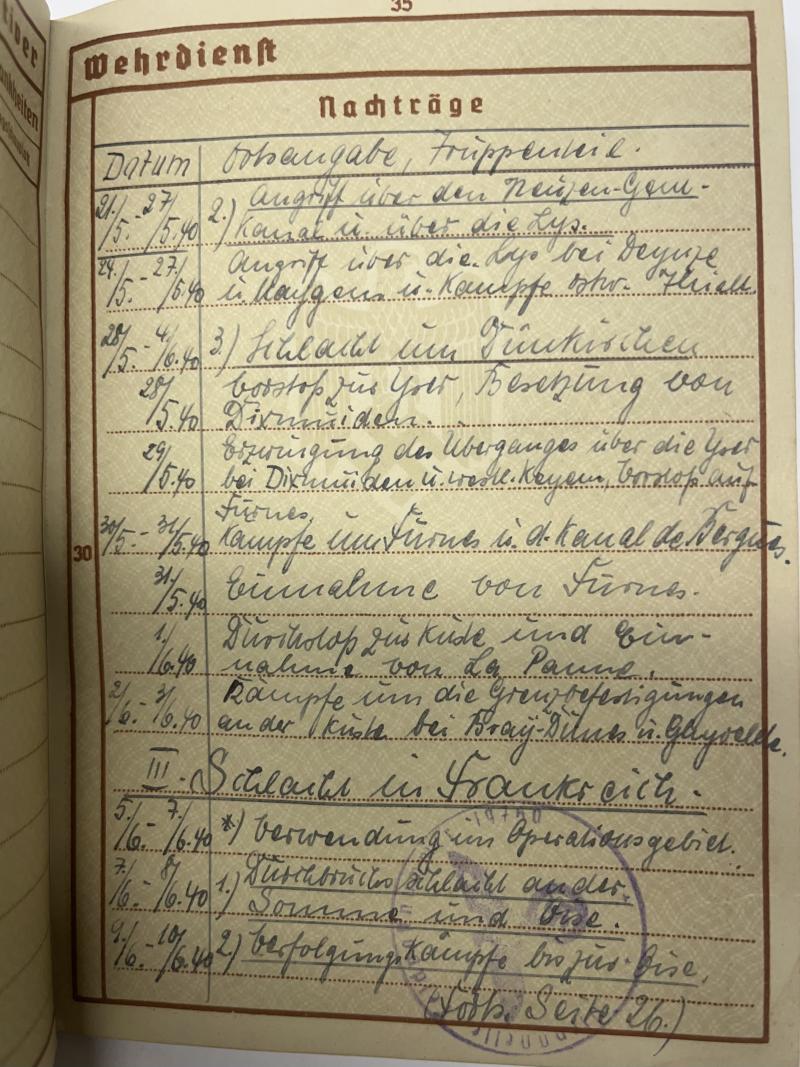 35
tiver
Wehrdienst
Nachträge
Datum Ortsangabe, Truppenteil.
21./5. - 27/5.40 2.) Angriff über den Neuzen-Gent-
Kanal u. über die Lys.
24./5. - 27./5.40 Angriff über die Lys bei Deynze
u. u. Kämpfe ostw. Thielt.
28/5. - 4/6.40 3.) Schlacht um Dünkirchen
28/5.40 Vorstoß zur Yser, Besetzung von
Dixmuiden.
29/5.40 Erzwingung des Überganges über die Yser
bei Dixmuiden u. westl. Keyem, Vorstoß auf
Furnes,
30/5. - 31/5.40 Kämpfe um Furnes u. d. Kanal de Bergues.
30
31/5.40 Einnahme von Furnes.
1./6.40 Durchstoß zur Küste und Ein-
nahme von La Panne.
2/6. - 3/6.40 Kämpfe um die Grenzbefestigungen
an der Küste bei Bray-Dünes u. Gyvelde.
III. Schlacht in Frankreich.
5./6. - 7./6.40 *) Verwendung im Operationsgebiet.
7./6. - 8/6.40 1.) Durchbruchsschlacht an der
Somme und Oise.
9./6. - 10/6.40 2.) Verfolgungskämpfe bis zur Oise.
(Forts. Seite 26.)